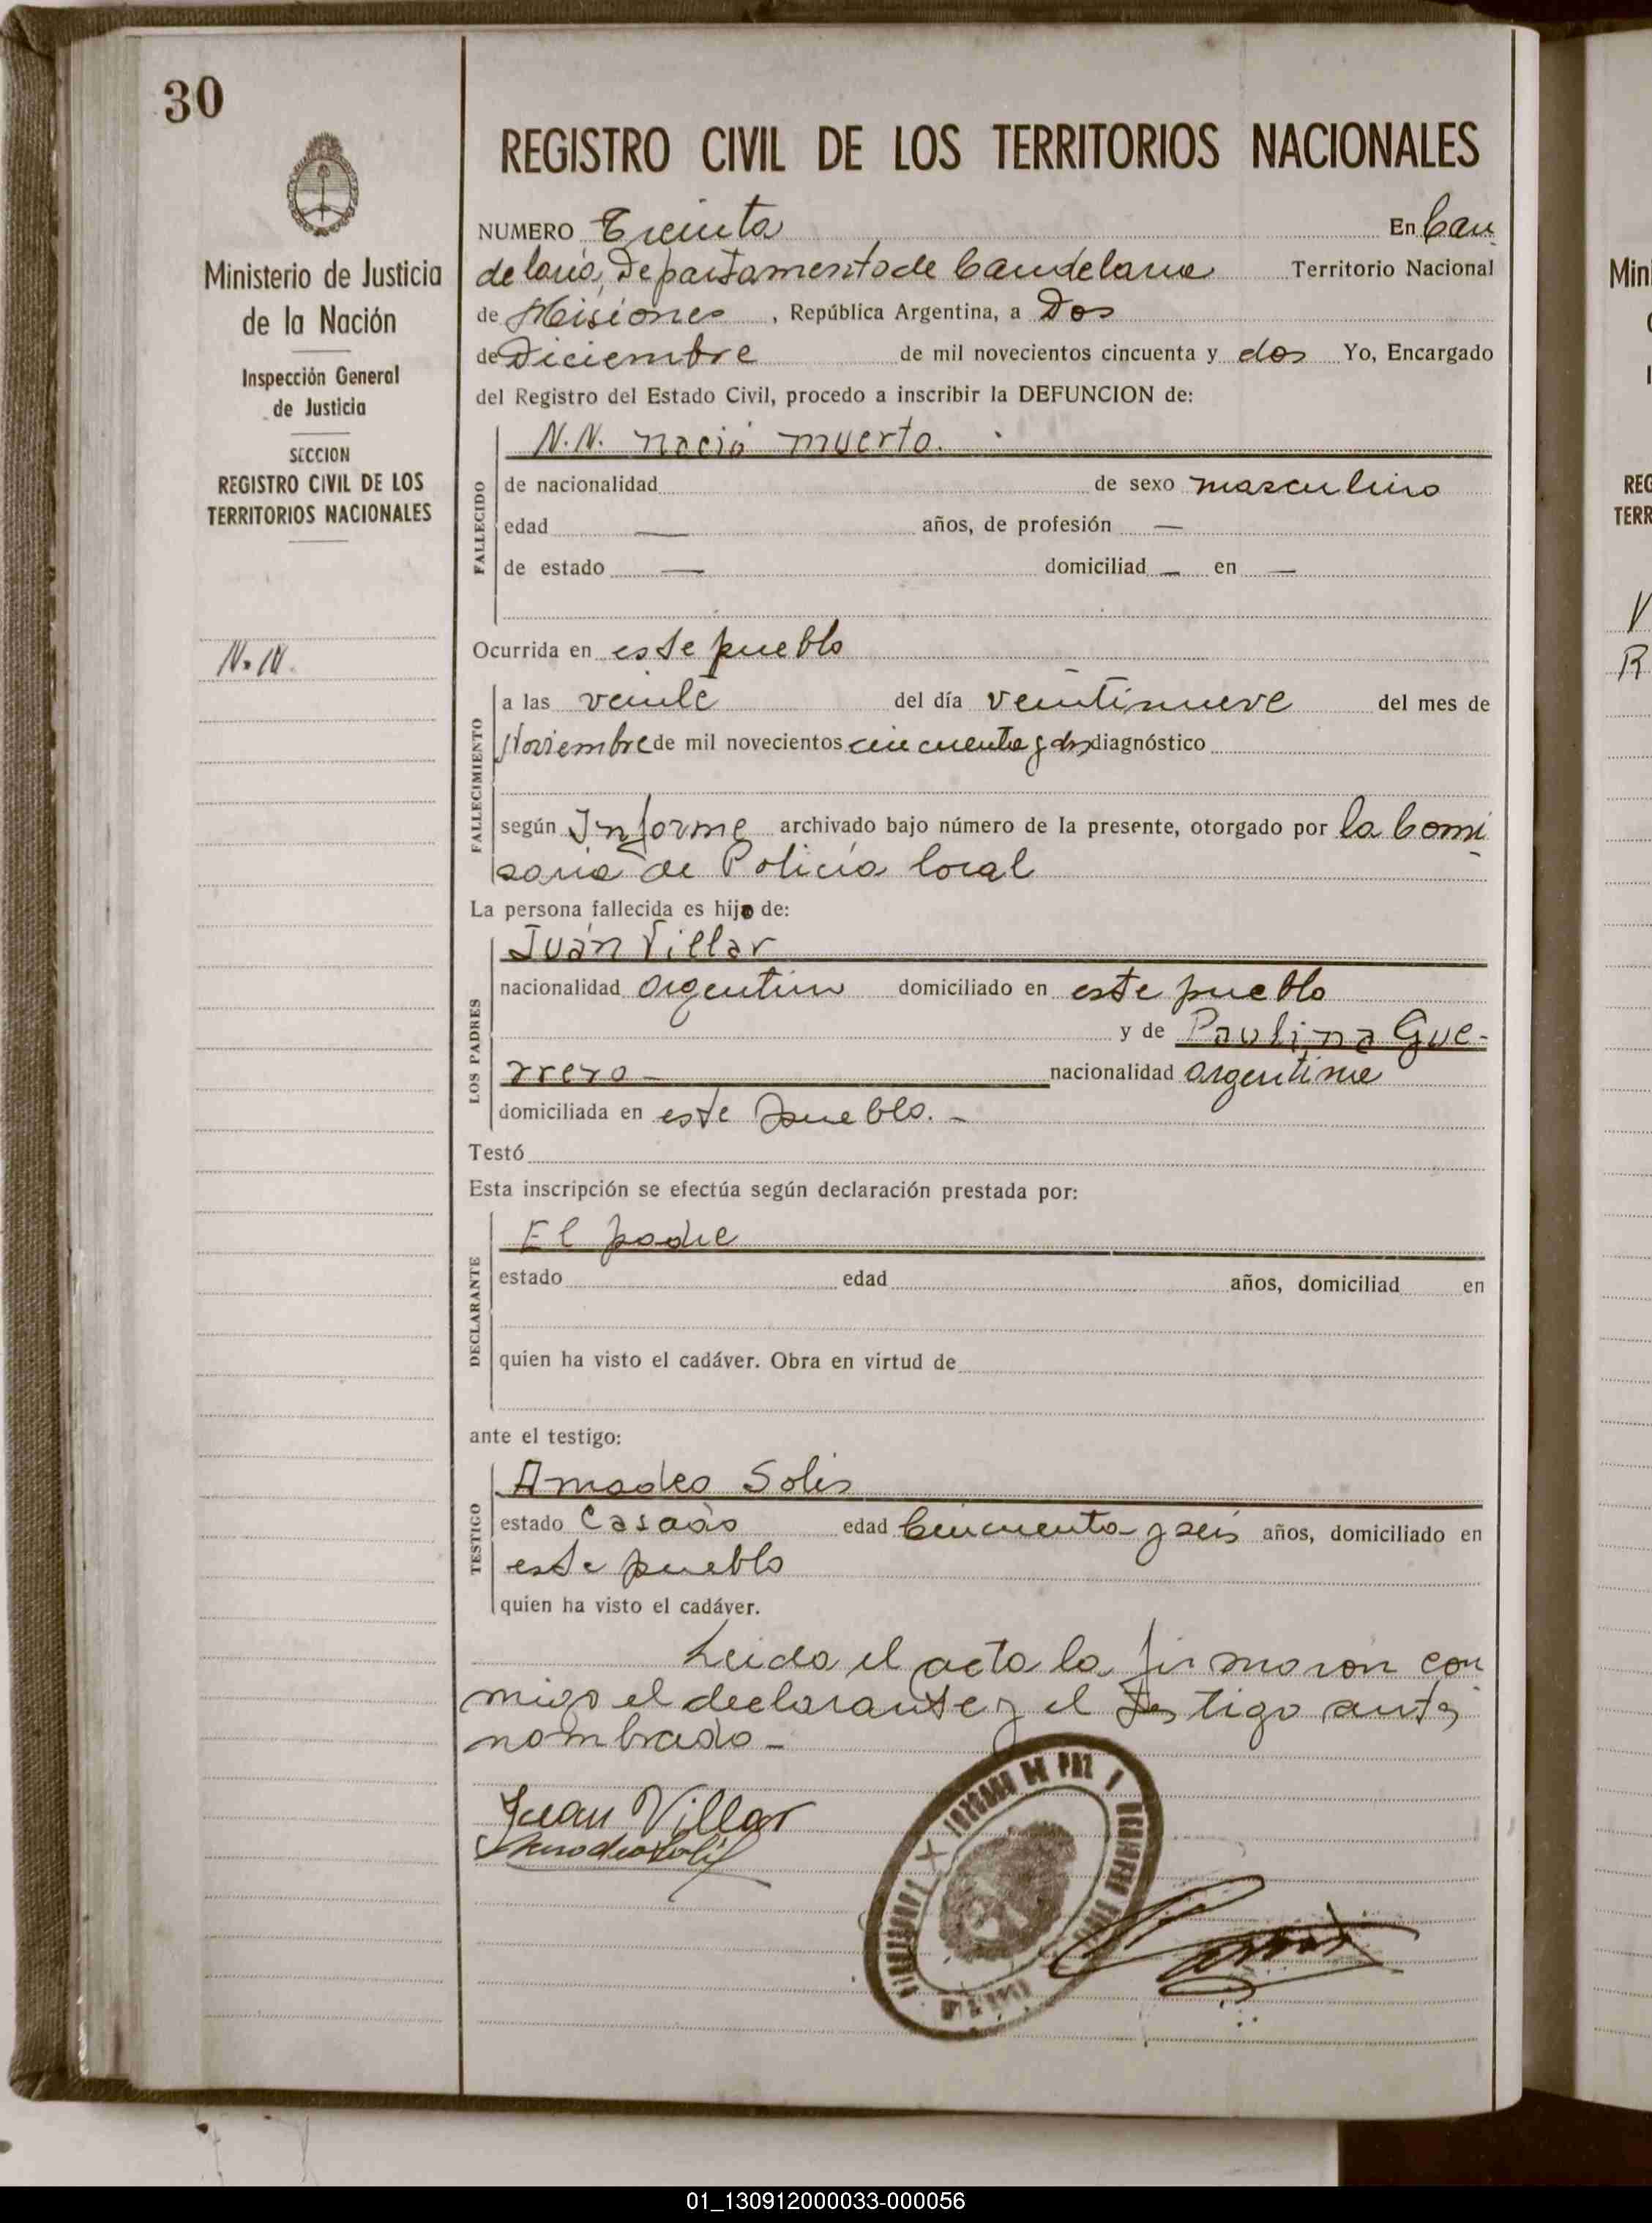 30
Ministerio de Justicia
de la Nación
Inspección General
de Justicia
SECCION
REGISTRO CIVIL DE LOS
TERRITORIOS NACIONALES
N.N.
REGISTRO CIVIL DE LOS TERRITORIOS NACIONALES
NUMERO Treinta En Can
delaria, Departamento de Candelaria Territorio Nacional
de Misiones, República Argentina, a Dos
de Diciembre de mil novecientos cincuenta y dos Yo, Encargado
del Registro del Estado Civil, procedo a inscribir la DEFUNCION de:
N.N. nació muerto.
FALLECIDO
de nacionalidad de sexo masculino
edad — años, de profesión —
de estado — domiciliad — en —
Ocurrida en este pueblo
FALLECIMIENTO
a las veinte del día veintinueve del mes de
Noviembre de mil novecientos cincuenta y dos diagnóstico
según Informe archivado bajo número de la presente, otorgado por la Comi
saria de Policía local
La persona fallecida es hijo de:
LOS PADRES
Juan Villar
nacionalidad argentino domiciliado en este pueblo
y de Paulina Gue-
rrero — nacionalidad argentina
domiciliada en este pueblo. —
Testó
Esta inscripción se efectúa según declaración prestada por:
DECLARANTE
El padre
estado edad años, domiciliad en
quien ha visto el cadáver. Obra en virtud de
ante el testigo:
TESTIGO
Amadeo Solis
estado Casado edad Cincuenta y seis años, domiciliado en
este pueblo
quien ha visto el cadáver.
Leida el acta la firmaron con
migo el declarante y el testigo antes
nombrado —
Juan Villar
Amadeo Solis
JUZGADO DE PAZ
01_130912000033-000056